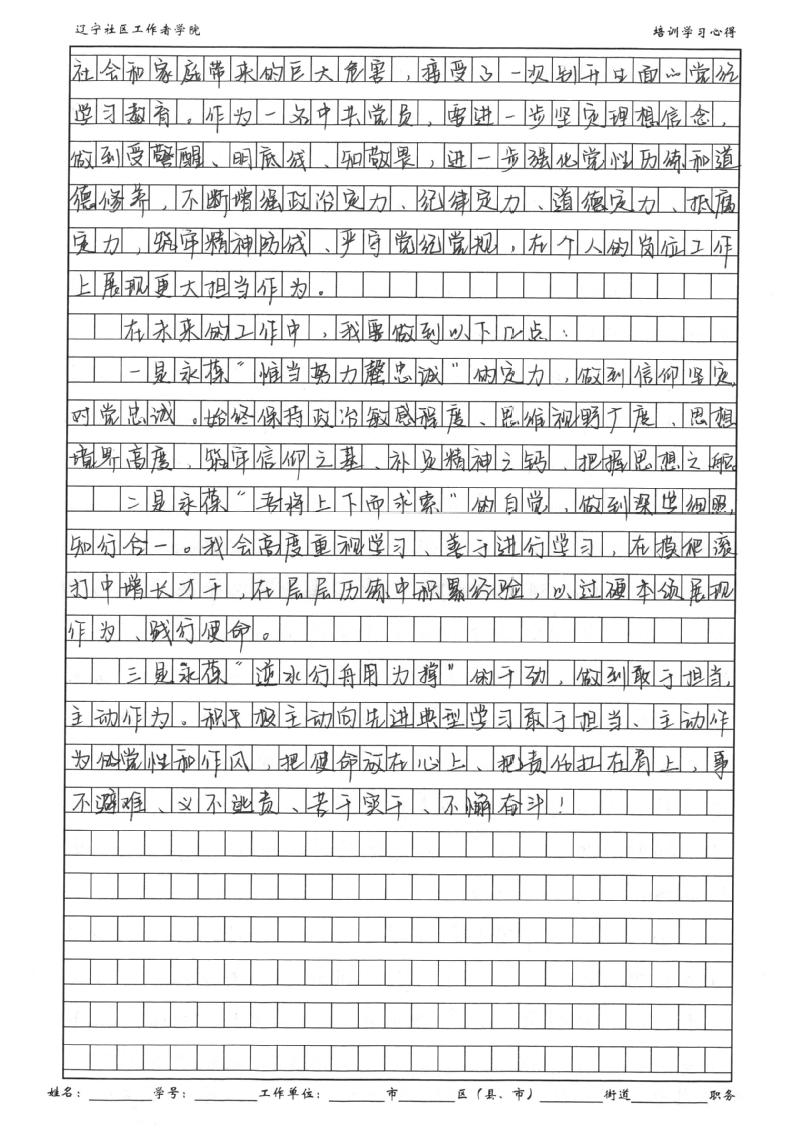 辽宁社区工作者学院 培训学习心得
社会和家庭带来的巨大危害，接受了一次别开生面的党纪
学习教育。作为一名中共党员，需进一步坚定理想信念，
做到受警醒、明底线、知敬畏，进一步强化党性历练和道
德修养，不断增强政治定力、纪律定力、道德定力、抵腐
定力，筑牢精神防线、严守党纪党规，在个人的岗位工作
上展现更大担当作为。
在未来的工作中，我要做到以下几点：
一是永葆“惟当努力罄忠诚”的定力，做到信仰坚定，
对党忠诚。始终保持政治敏感程度、思维视野广度、思想
境界高度，筑牢信仰之基、补足精神之钙、把握思想之舵。
二是永葆“吾将上下而求索”的自觉，做到深学细照，
知行合一。我会高度重视学习、善于进行学习，在摸爬滚
打中增长才干，在层层历练中积累经验，以过硬本领展现
作为、践行使命。
三是永葆“逆水行舟用力撑”的干劲，做到敢于担当，
主动作为。积极主动向先进典型学习敢于担当、主动作
为的党性和作风，把使命放在心上、把责任扛在肩上，事
不避难、义不逃责、苦干实干、不懈奋斗！
姓名： 学号： 工作单位： 市 区（县、市） 街道 职务